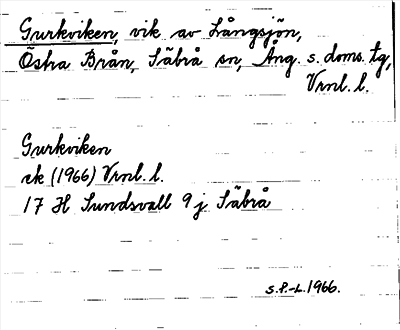 Gurkviken, vik av Långsjön,
Östra Brån, Säbrå sn, Ång. s. doms. tg,
Vrnl. l.
Gurkviken
rk (1966) Vrnl. l.
17 H Sundsvall 9 j Säbrå
S.P.-L. 1966.